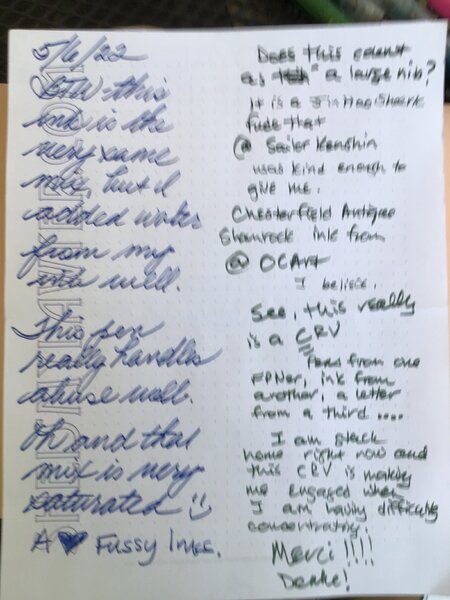 5/6/22
BTW this
ink is the
very same
mix, but I
added water
from my
ink well.
This pen
really handles
abuse well.
Oh and that
mix is very
saturated :)
A ♥ Fussy Inks.
Does this count
as a large nib?
It is a Jinhao Shark
fude that
@ Sailor Kenshin
was kind enough to
give me.
Chesterfield Antique
Shamrock ink from
@ OCArt
I believe.
See, this really
is a CRV
Pens from one
FPNer, ink from
another, a letter
from a third ....
I am stuck
home right now and
this CRV is making
me engaged when
I am having difficulty
concentrating.
Merci !!!!
Danke!